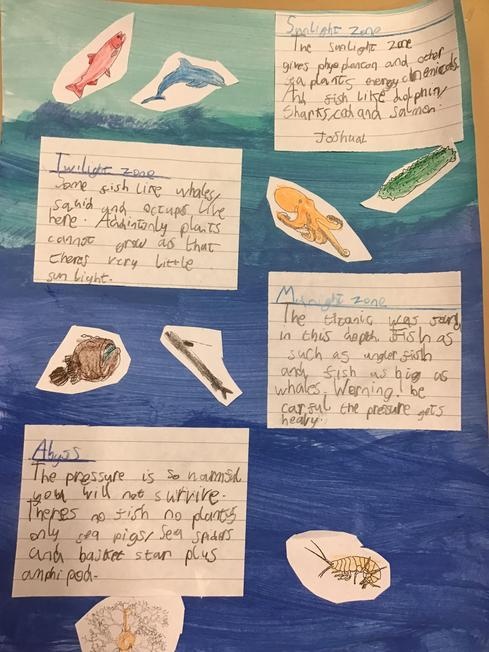 Sunlight zone
The sunlight zone
gives phyoplancton and other
sea plants energy chemicals.
And fish like dolphin/
Sharks, cod and salmon.
Joshual
Twilight zone
Some fish like whales/
squid and octups live
here. Addintionly plants
cannot grow as that
theres very little
sun light.
Midnight zone
The titanic was
in this depth Fish as
such as angler fish
and fish as big as
whales. Worning! be
careful the pressure gets
heavy.
Abyss
The pressure is so
you will not survive.
Theres no fish no plants
only sea pigs/ Sea spiders
and basket star plus
amphipod.